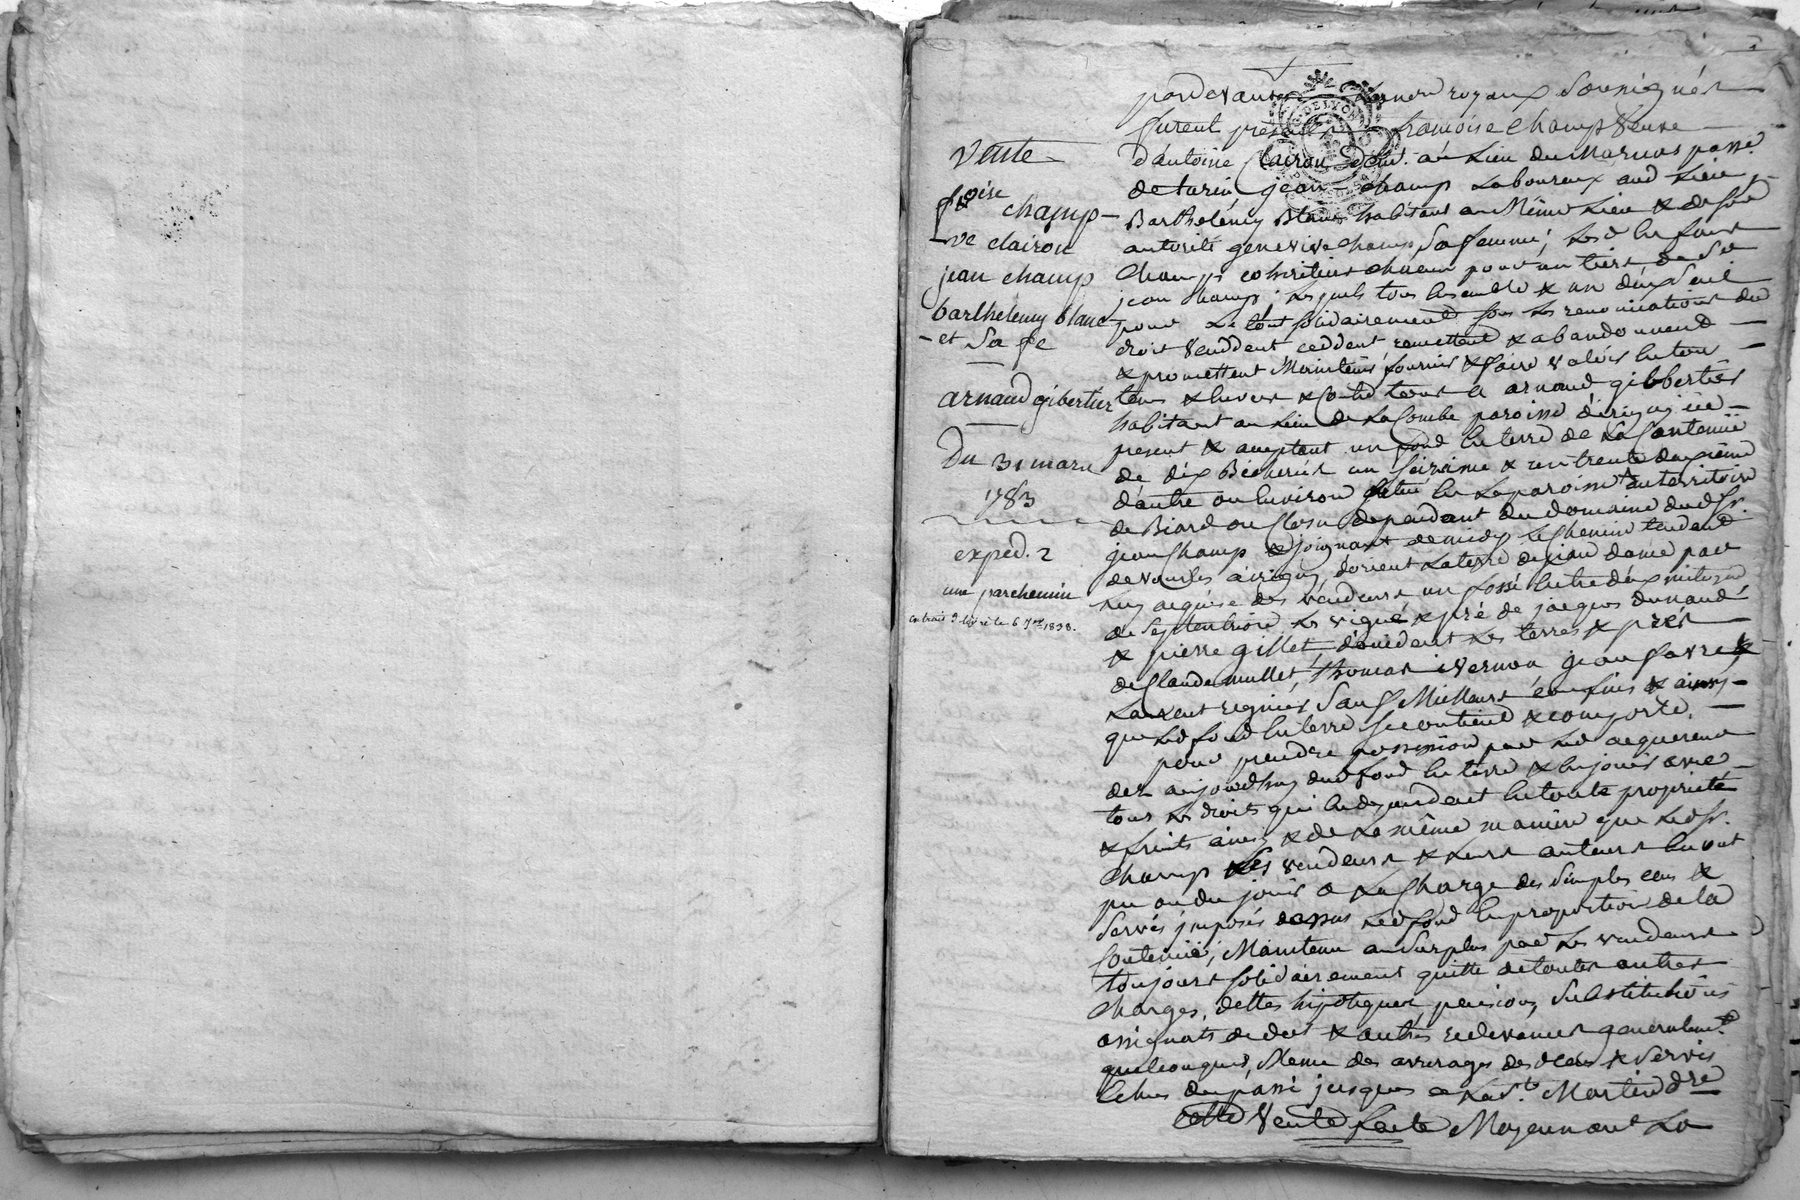 vente
fsoise champ
ve clairon
jean champ
barthelemy blanc
et sa fe
arnaud gibertier
Du 31 mars
1783
exped. 2
une parchemin
extrait 9 livré le 6 1838.
pardevant royaux soussignés
furent présents françoise champ veuve
d'antoine Clairon dem.t au lieu du Marnas parr.e
jean champ laboureur aud lieu
Barthelémy Blanc habitant au Même lieu & de son
autorité genevive champ sa femme; lesd enfans
champ cohéritiers chacun pour un tiers de
jean champ; lesquels tous ensemble & un d'eux seul
pour le tout solidairement sous les renonciations de
droit venddent ceddent remettent & abandonnent
& promettent Maintenir fournir & faire valoir en tous
tems & envers & contre tous a arnaud gibbertier
habitant au lieu de la Combe paroisse d'érigny icy
présent & acceptant un fond en terre de la Contenüe
de dix Bicherées un seizieme & un trente deuxième
d'autre ou environ situé en la paroisse au territoire
de Biard ou dependant du domaine dud S.r
jean Champ & joignant de midy le Chemin tendant
de vourles à irigny, d'orient la terre de jean dame par
luy acquise des vendeurs un fossé entre deux mitoyen
de septentrion les vigne & pré de jacques dunand
& pierre gillet, d'occident les terres & prés
de Claude mullet, thomas jean favre &
Laurent sauf Meilleurs confins & ainsy
que led fond en terre se contient & comporte.
pour prendre possession par led acquereur
dez aujourd'huy dud fond en terre & en jouir avec
tous les droits qui en dependent en toute propriété
& fruits ainsy & de la même manière que led S.r
Champ les vendeurs & leurs auteurs en ont
pu ou du jouir a la Charge des simples cens &
servis imposés dessus led fond en proportion de la
Contenüe, Maintenu au surplus par les vendeurs
toujours solidairement quitte de toutes autres
charges, dettes hipoteques, pensions, substitutions
assignats de dot & autres redevances generalem.t
quelconques, Meme des arrerages desd cens & servis
Echus du passé jusques a la S.t Martin d.re
Cette vente faite Moyennant la